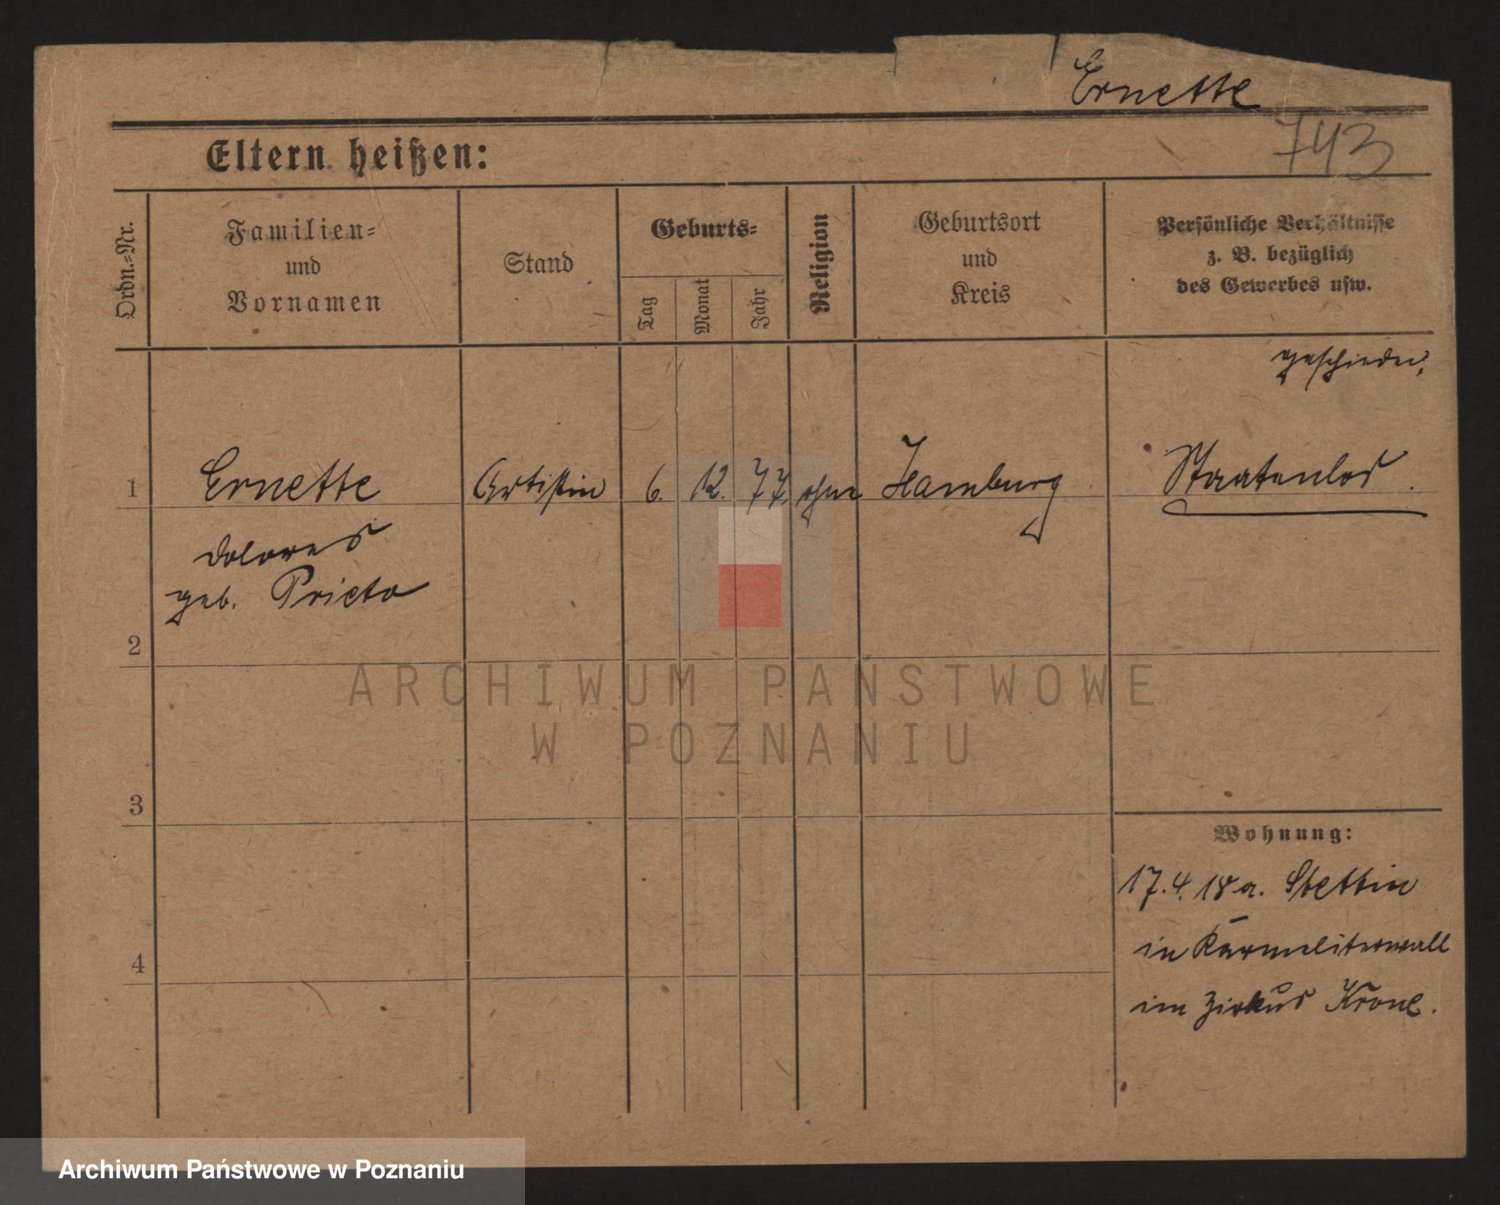 Ernette
743
Eltern heißen:
Ordn.-Nr.
Familien-
und
Vornamen
Stand
Geburts-
Tag
Monat
Jahr
Religion
Geburtsort
und
Kreis
Persönliche Verhältnisse
z. B. bezüglich
des Gewerbes usw.
geschieden
1 Ernette Artistin 6. 12. 77. ohne Hamburg Staatenlos.
Dolores
geb. Prieto
2
ARCHIWUM PAŃSTWOWE
W POZNANIU
3
Wohnung:
17.4.18 a. Stettin
in Karmeliterwall
im Zirkus Krone.
4
Archiwum Państwowe w Poznaniu